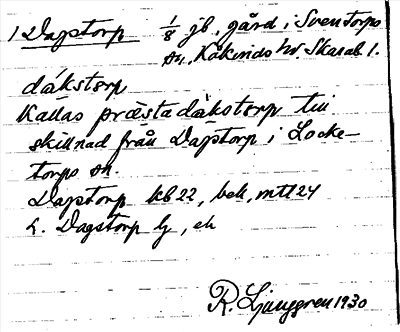 1 Dagstorp 1/8 jb, gård i Sventorps
sn, Kåkinds hd. Skarab l.
dákstɔrp
Kallas prǽstadàkstɔrp till
skillnad från Dagstorp i Locke-
torps sn.
Dagstorp kb 22, bek, mtl 24
L. Dagstorp lj, ek
R. Ljunggren 1930